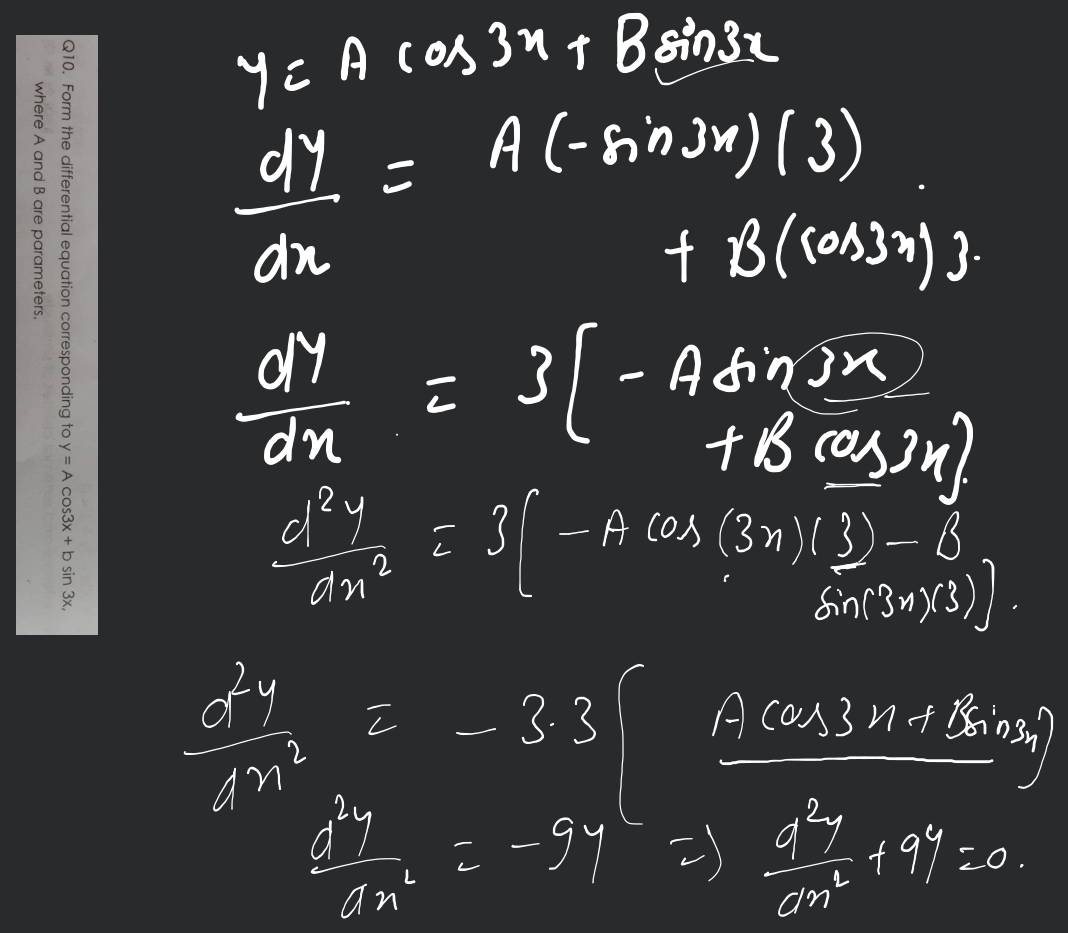 Q10. Form the differential equation corresponding to y = A cos3x + b sin 3x,
where A and B are parameters.
y = A cos 3x + B sin3x
dy/dx = A (-sin 3x) (3)
+ B (cos3x) 3.
dy/dx = 3[ - A sin 3x
+ B cos 3x].
d²y/dx² = 3[ -A cos (3x)(3) - B
sin(3x)(3)].
d²y/dx² = -3.3 [ A cos3x + Bsin3x]
d²y/dx² = -9y => d²y/dx² + 9y = 0.